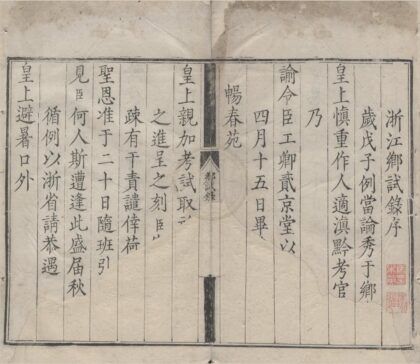 浙江鄉試錄序
歲戊子例當論秀于鄉
皇上慎重作人適滇黔考官
乃
諭令臣工卿貳京堂以
四月十五日畢
暢春苑
皇上親加考試取
之進呈之刻臣
疎有干責譴倖荷
聖恩准于二十日隨班引
見臣何人斯遭逢此盛届秋
循例以浙省請恭遇
皇上避暑口外